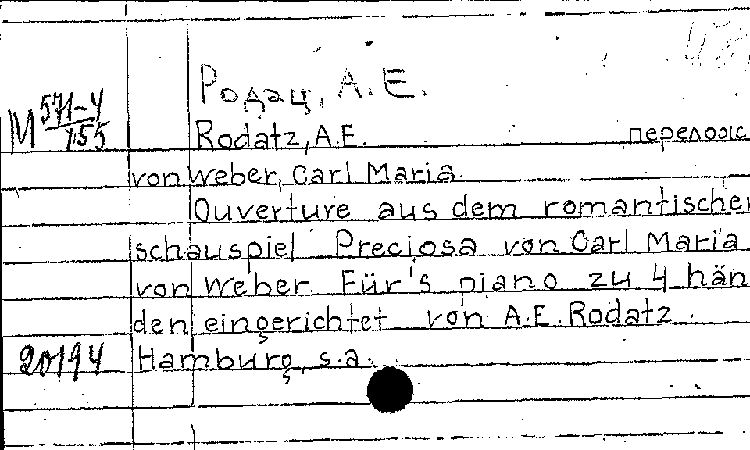 Родац, А.Е.
М 571-4/155
Rodatz, A.E. перелож
von Weber, Carl Maria
Ouverture aus dem romantischen
schauspiel Preciosa von Carl Maria
von Weber. Für's piano zu 4 hän
den eingerichtet von A.E. Rodatz.
20194 Hamburg, s.a.